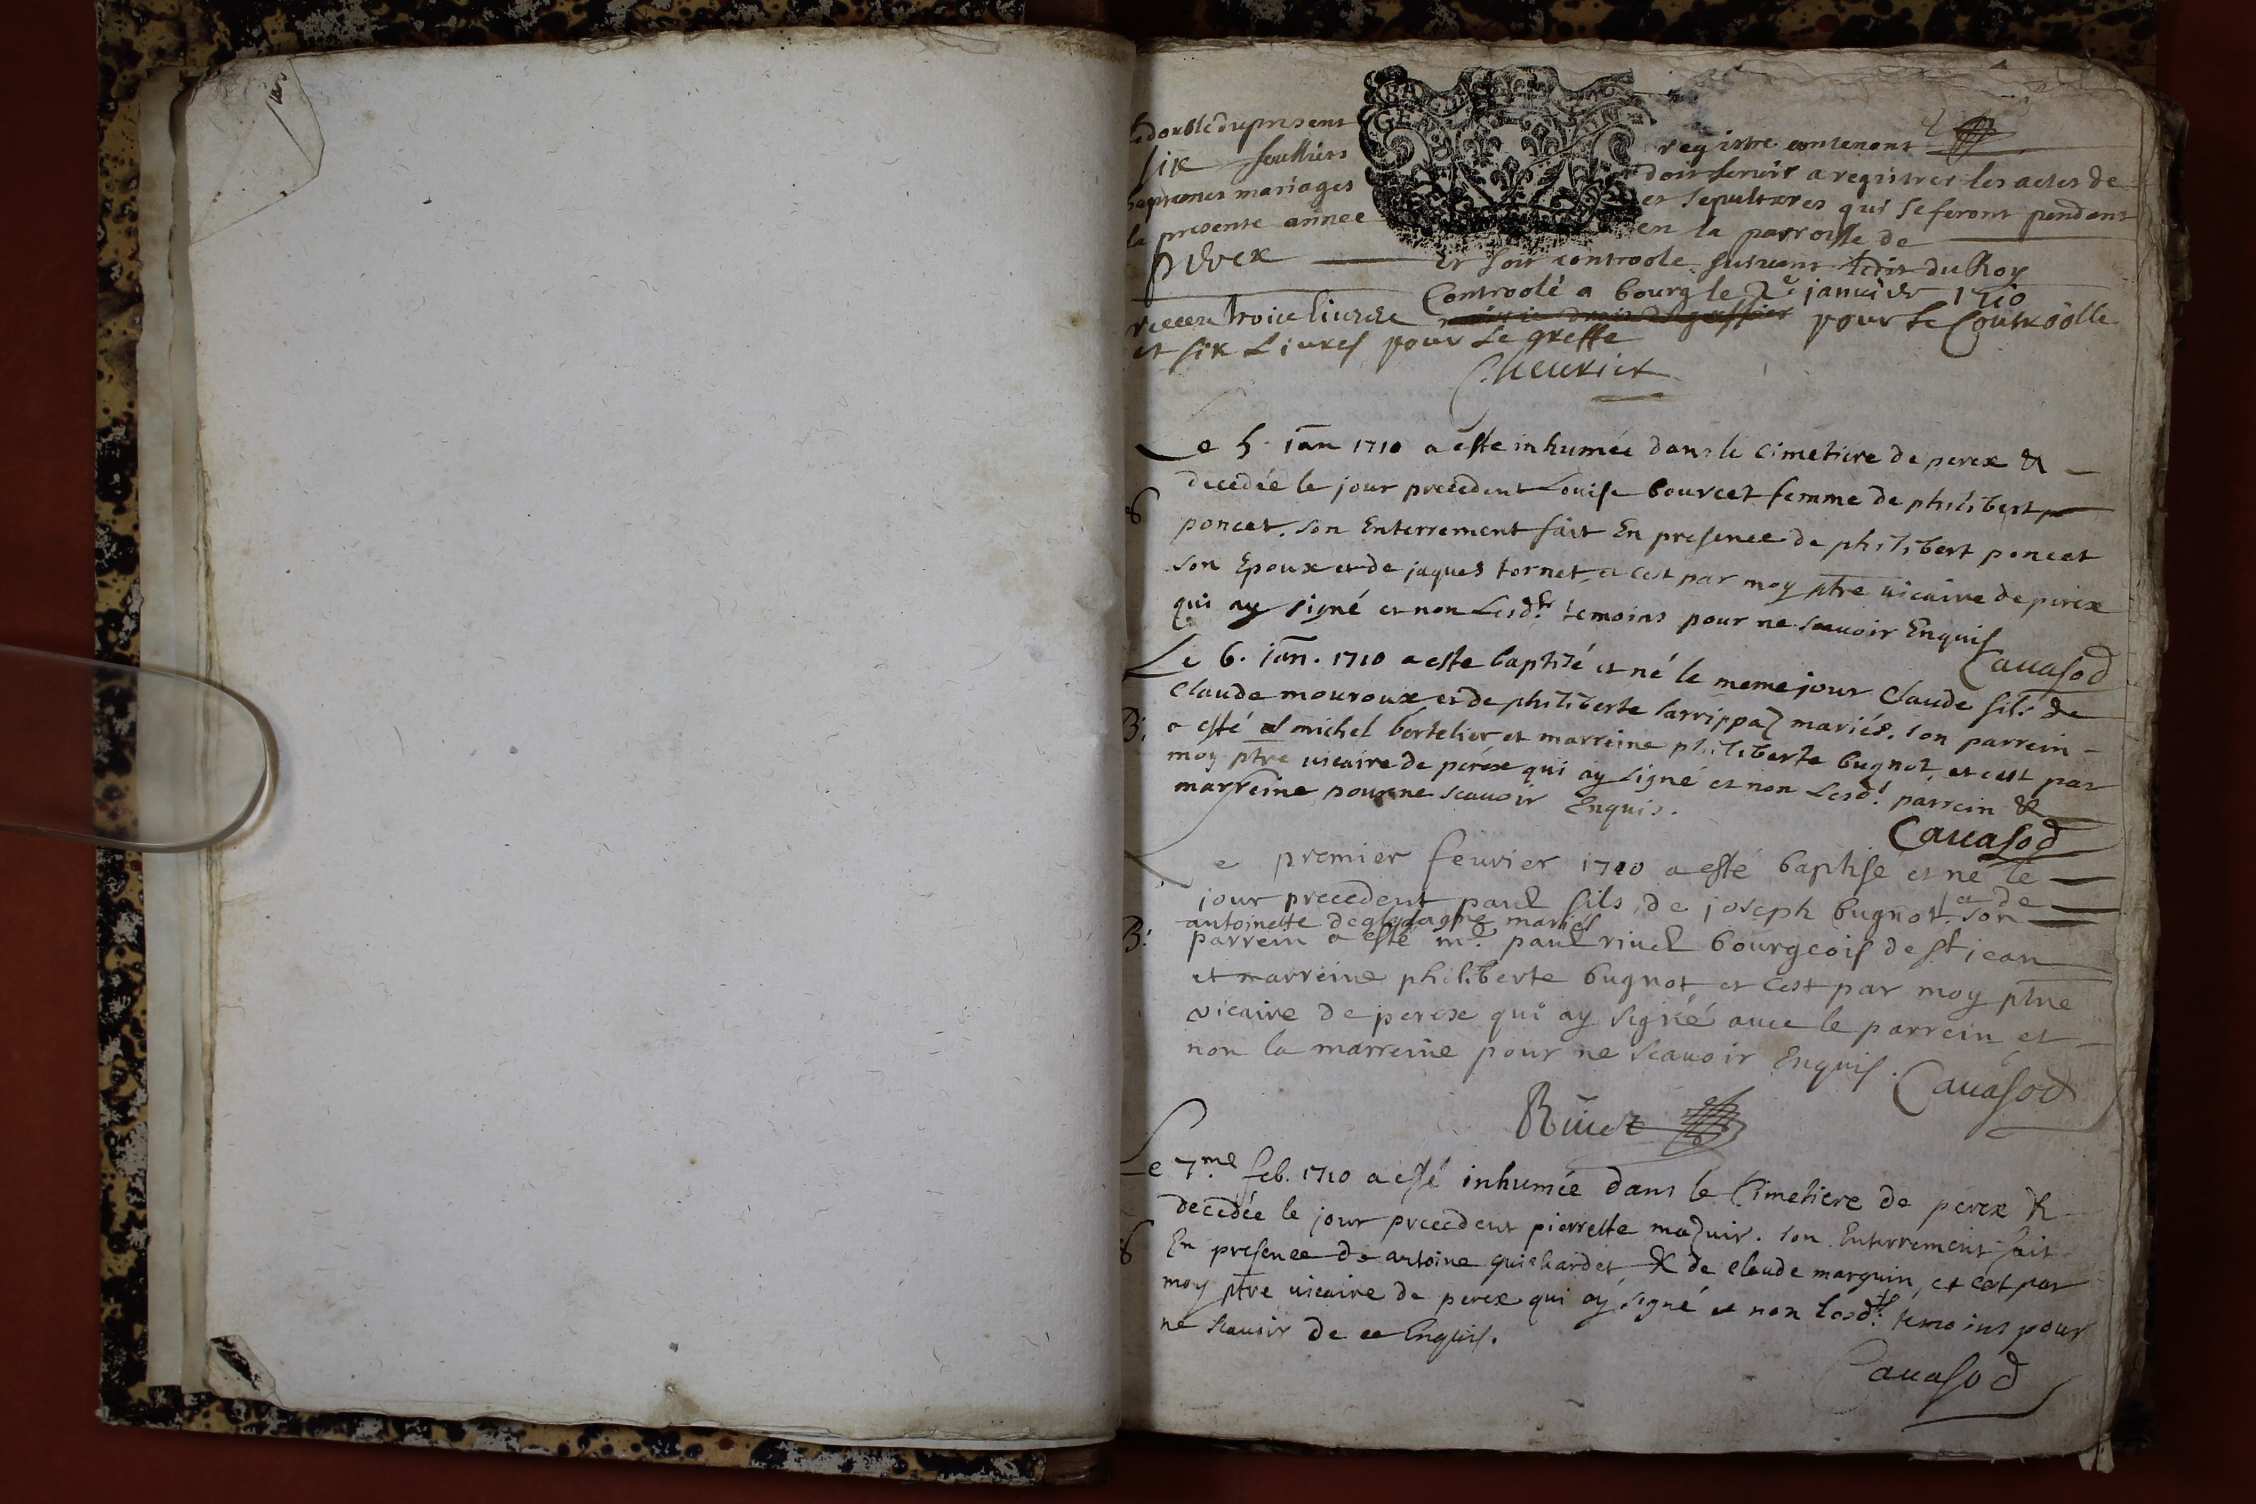 Le double du present registre contenant
six feulliers doit servir a registrer les actes de
baptemes mariages et sepultures qui se feront pendent
la presente annee en la parroisse de
perex et soit controole suivant ledit du Roy
Controolé a bourg le 2e janvier 1710
receu trois livres pour le Controolle
et six Livres pour Le greffe
Cheurier
Le 5. ian 1710 a esté inhumée dans le cimetiere de perex &
decedée le jour precedent Louise bourcet femme de philibert
S
poncet. son Enterrement fait En presence de philibert poncet
son Epoux et de jaques tornet, et cest par moy ptre vicaire de perex
qui ay signé et non Lesd.ts temoins pour ne scauoir Enquis
Cauasod
Le 6. ian. 1710 a esté baptisé et né le meme jour Claude fils de
Claude mouroux et de philiberte sarrippaz mariés. son parrein
B:
a esté michel bertelier et marreine philiberte bugnot, et cest par
moy ptre vicaire de perex qui ay signé et non Lesd.ts parrein &
marreine pour ne scauoir Enquis.
Cauasod
Le premier feurier 1710 a esté baptisé et né le
jour precedent paul fils de joseph bugnot et de
antoinette mariés son
B:
parrein a esté me. paul riuel bourgeois de st jean
et marreine philiberte bugnot et cest par moy ptre
vicaire de perex qui ay signé auec le parrein et
non la marreine pour ne scauoir Enquis.
Cauasod
Le 7.me feb. 1710 a esté inhumée dans le Cimetiere de perex &
decedée le jour precedent pierrette mazuir. son Enterrement fait
S
En presence de antoine guichardet & de claude marguin, et cest par
moy ptre vicaire de perex qui ay signé et non lesd.ts temoins pour
ne scauoir de ce Enquis.
Cauasod